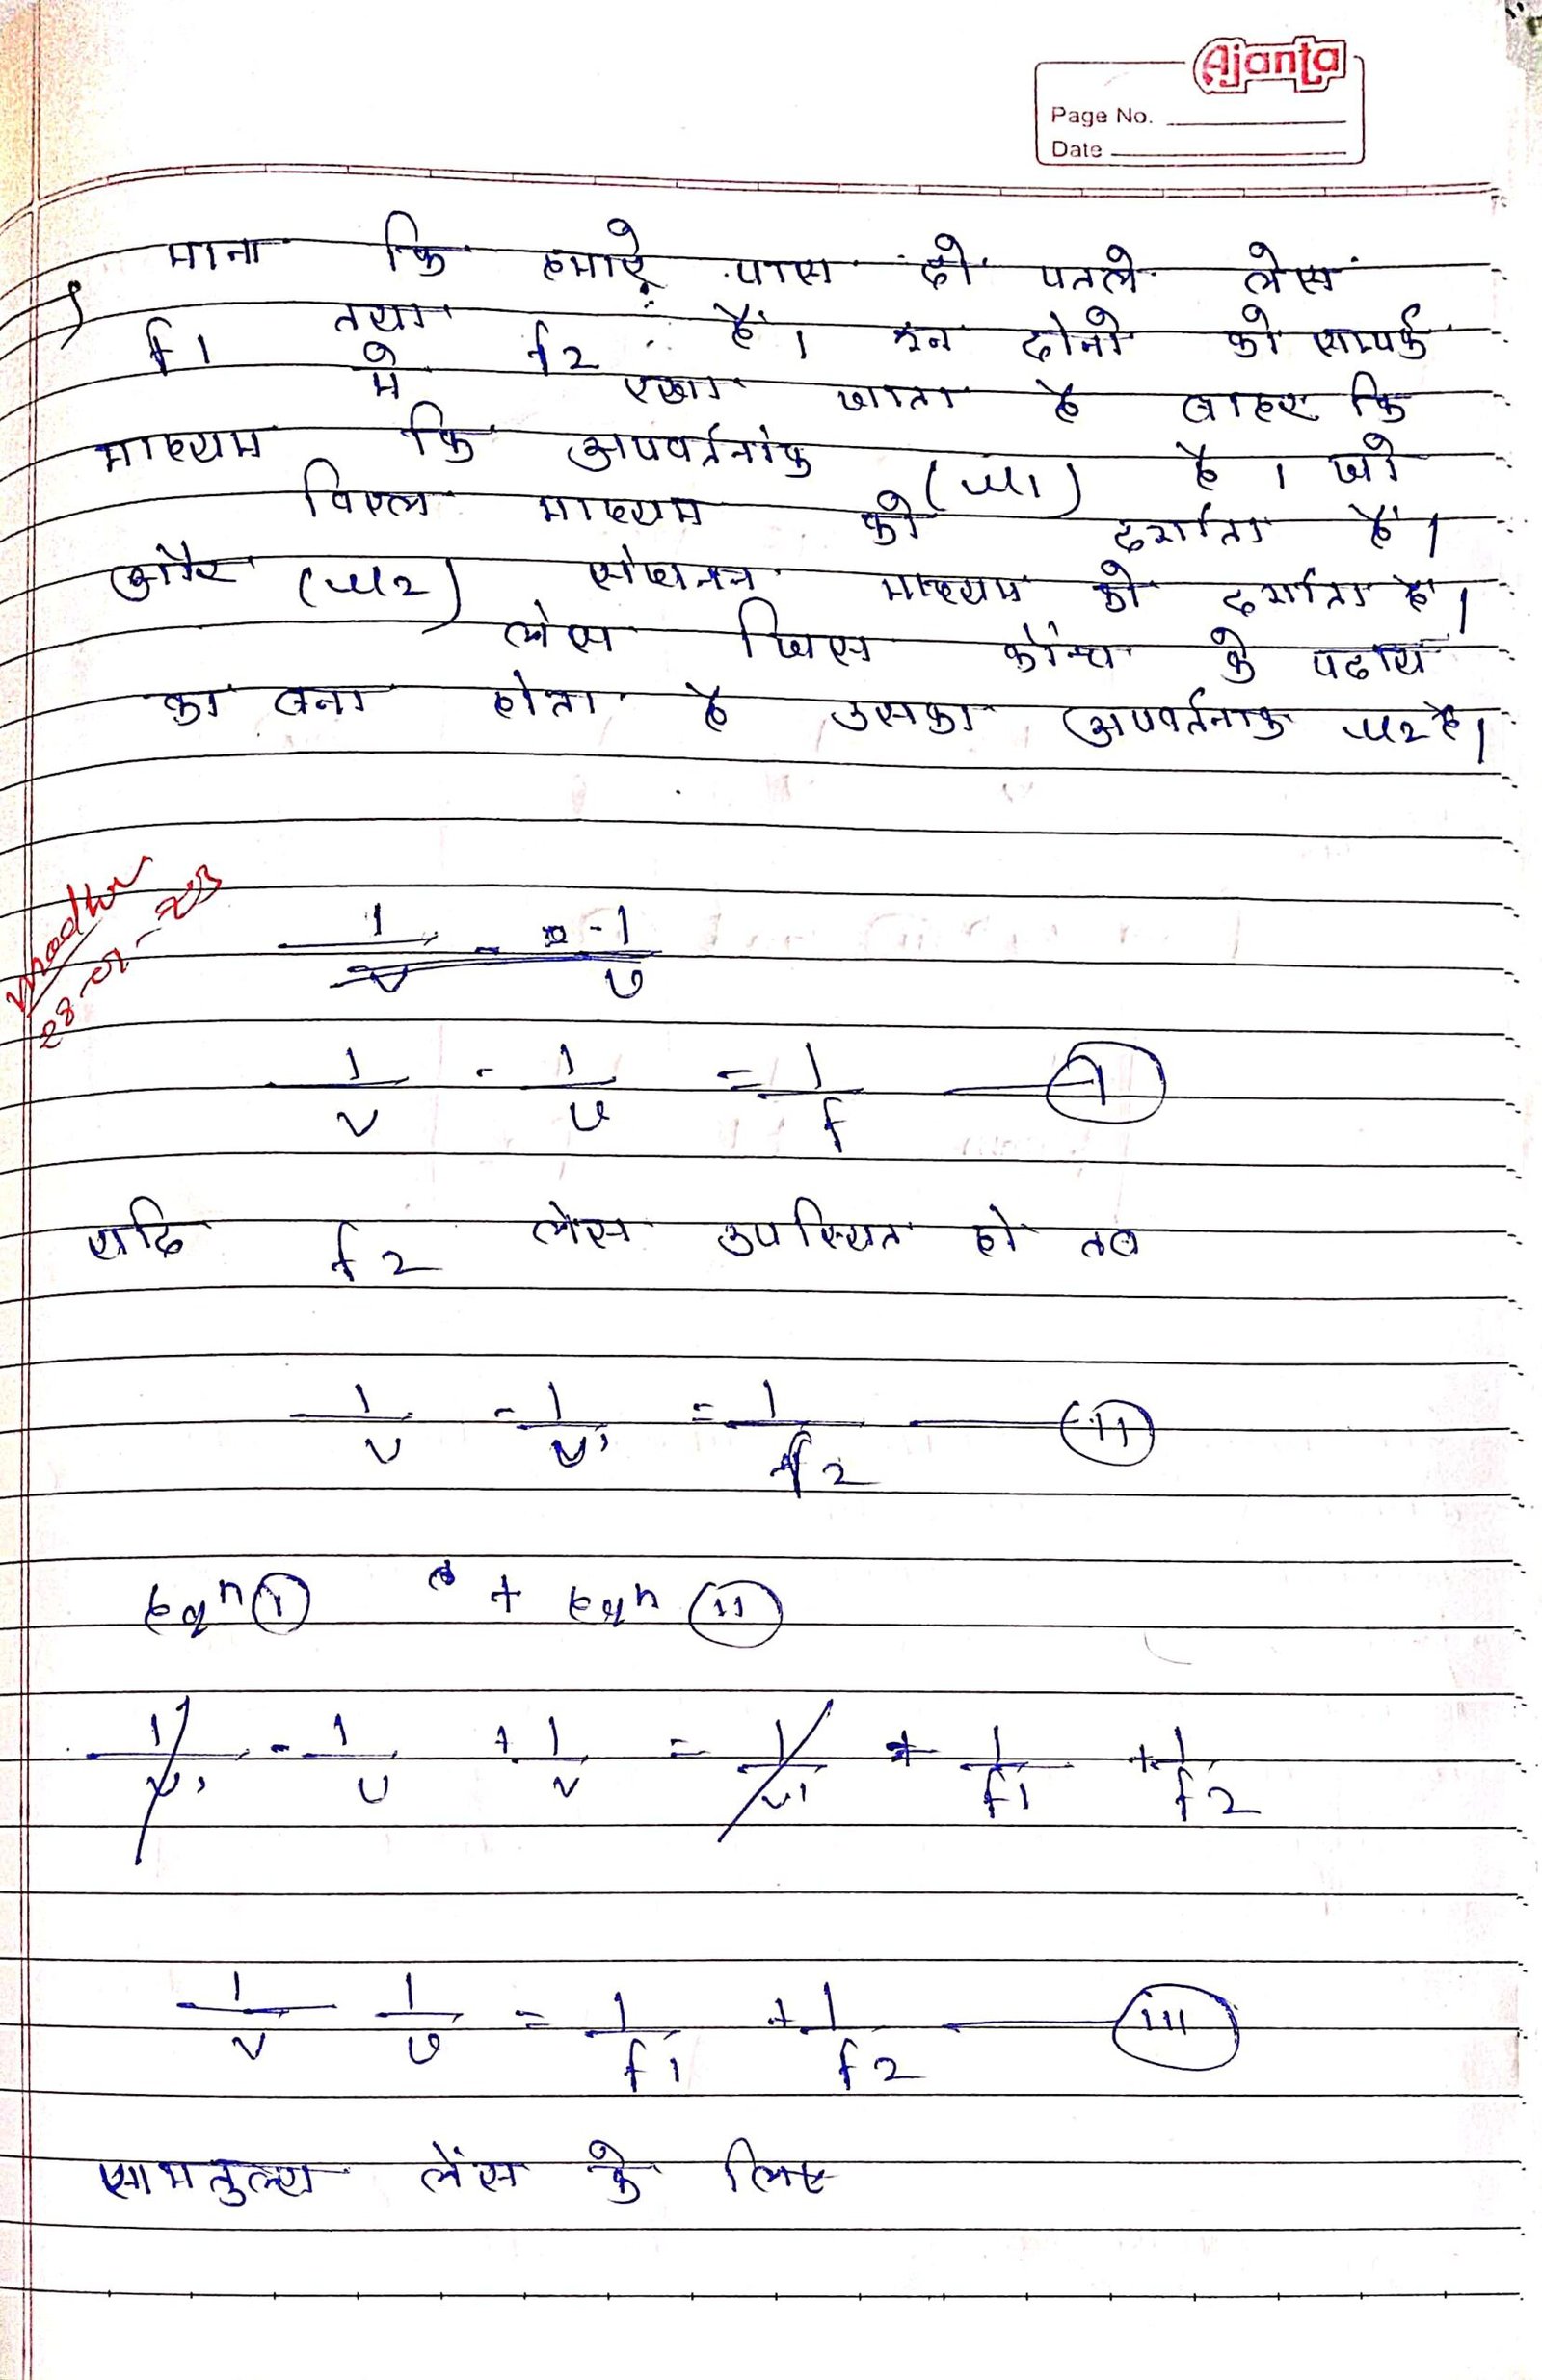 Ajanta
Page No.
Date
माना कि हमारे पास दो पतले लेंस
f1 तथा f2 हैं। इन दोनो को साम्पर्क
में रखा जाता है बाहर कि
माध्यम कि अपवर्तनांक (μ1) है। जो
विरल माध्यम को दर्शाता हैं।
और (μ2) संघनन माध्यम को दर्शाता है।
लेंस जिस काँच के पदार्थ
का बना होता है उसका अपवर्तनाक μ2 है।
28-01-23
1/v - 1/u = 1/f — I
यदि f2 लेंस उपस्थित हो तब
1/v - 1/v' = 1/f2 — II
Eqn I + Eqn II
1/v' - 1/u + 1/v = 1/v' + 1/f1 + 1/f2
1/v 1/u = 1/f1 + 1/f2 — III
सामतुल्य लेंस के लिए